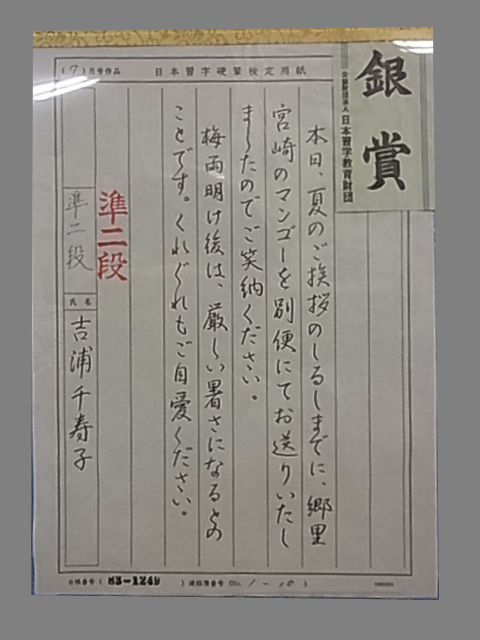 (7)月号作品 日本習字硬筆検定用紙
銀賞
公益財団法人 日本習字教育財団
本日、夏のご挨拶のしるしまでに、郷里
宮崎のマンゴーを別便にてお送りいたし
ましたのでご笑納ください。
梅雨明け後は、厳しい暑さになるとの
ことです。くれぐれもご自愛ください。
準二段
準二段
氏名
吉浦千寿子
合格番号 ( 83-1249 )